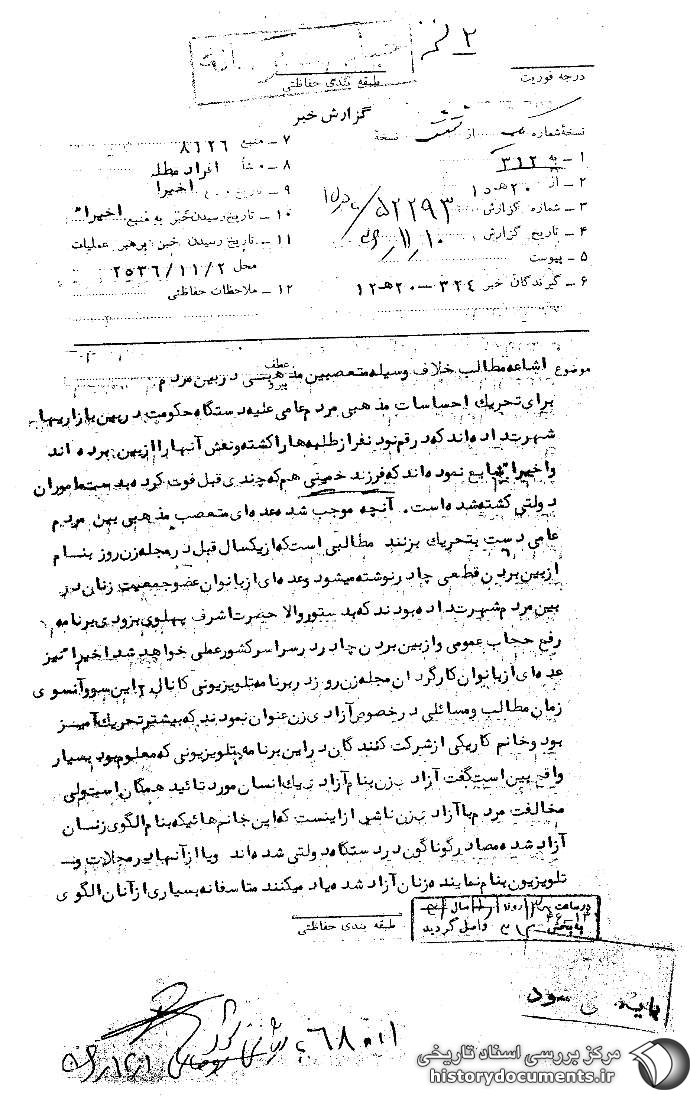 درجه فوریت
طبقه بندی حفاظتی
گزارش خبر
نسخهٔ شماره یک از نسخهٔ
۱ ـ به ۳۱۲
۲ ـ از ۲۰ هـ ۱
۳ ـ شماره گزارش ۵۲۲۹۳
۴ ـ تاریخ گزارش ۱۰/۱۱
۵ ـ پیوست
۶ ـ گیرندگان خبر ۳۲۴ ـ ۲۰هـ۱۲
۷ ـ منبع ۸۱۲۶
۸ ـ منشأ افراد مطلع
۹ ـ تاریخ اخیرا
۱۰ ـ تاریخ رسیدن خبر به منبع اخیراً
۱۱ ـ تاریخ رسیدن خبر برهبر عملیات
محل ۲۵۳۶/۱۱/۲
۱۲ ـ ملاحظات حفاظتی
موضوع اشاعه مطالب خلاف وسیله متعصبین مذهبی در بین مردم
عطف
پیرو
برای تحریک احساسات مذهبی مردم عامی علیه دستگاه حکومت در بین بازاریها
شهرت داده اند که در قم نود نفر از طلبه ها را کشته و نعش آنها را از بین برده اند
و اخیراً شایع نموده اند که فرزند خمینی هم که چندی قبل فوت کرده بدست ماموران
دولتی کشته شده است. آنچه موجب شده عده ای متعصب مذهبی بین مردم
عامی دست بتحریک بزنند مطالبی است که از یکسال قبل در مجله زن روز بنام
از بین بردن قطعی چادر نوشته میشود و عده ای از بانوان عضو جمعیت زنان در
بین مردم شهرت داده بودند که بدستور والا حضرت اشرف پهلوی بزودی برنامه
رفع حجاب عمومی و از بین بردن چادر در سراسر کشور عملی خواهد شد اخیراً نیز
عده ای از بانوان کارگردان مجله زن روز در برنامه تلویزیونی کانال ۲ این سو و آنسوی
زمان مطالب و مسائلی در خصوص آزادی زن عنوان نمودند که بیشتر تحریک آمیز
بود و خانم کاریکی از شرکت کنندگان در این برنامه تلویزیونی که معلوم بود بسیار
واقع بین است گفت آزادی زن بنام آزادی یک انسان مورد تائید همگان است ولی
مخالفت مردم با آزادی زن ناشی از اینست که این خانم هائیکه بنام الگوی زنان
آزاد شده مصادر گوناگون در دستگاه دولتی شده اند و یا از آنها در مجلات و
تلویزیون بنام نماینده زنان آزاد شده یاد میکنند متاسفانه بسیاری از آنان الگوی
طبقه بندی حفاظتی
در ساعت روز سال
به بخش ۳۱۲ واصل گردید
بایگانی شود
مرکز بررسی اسناد تاریخی
historydocuments.ir